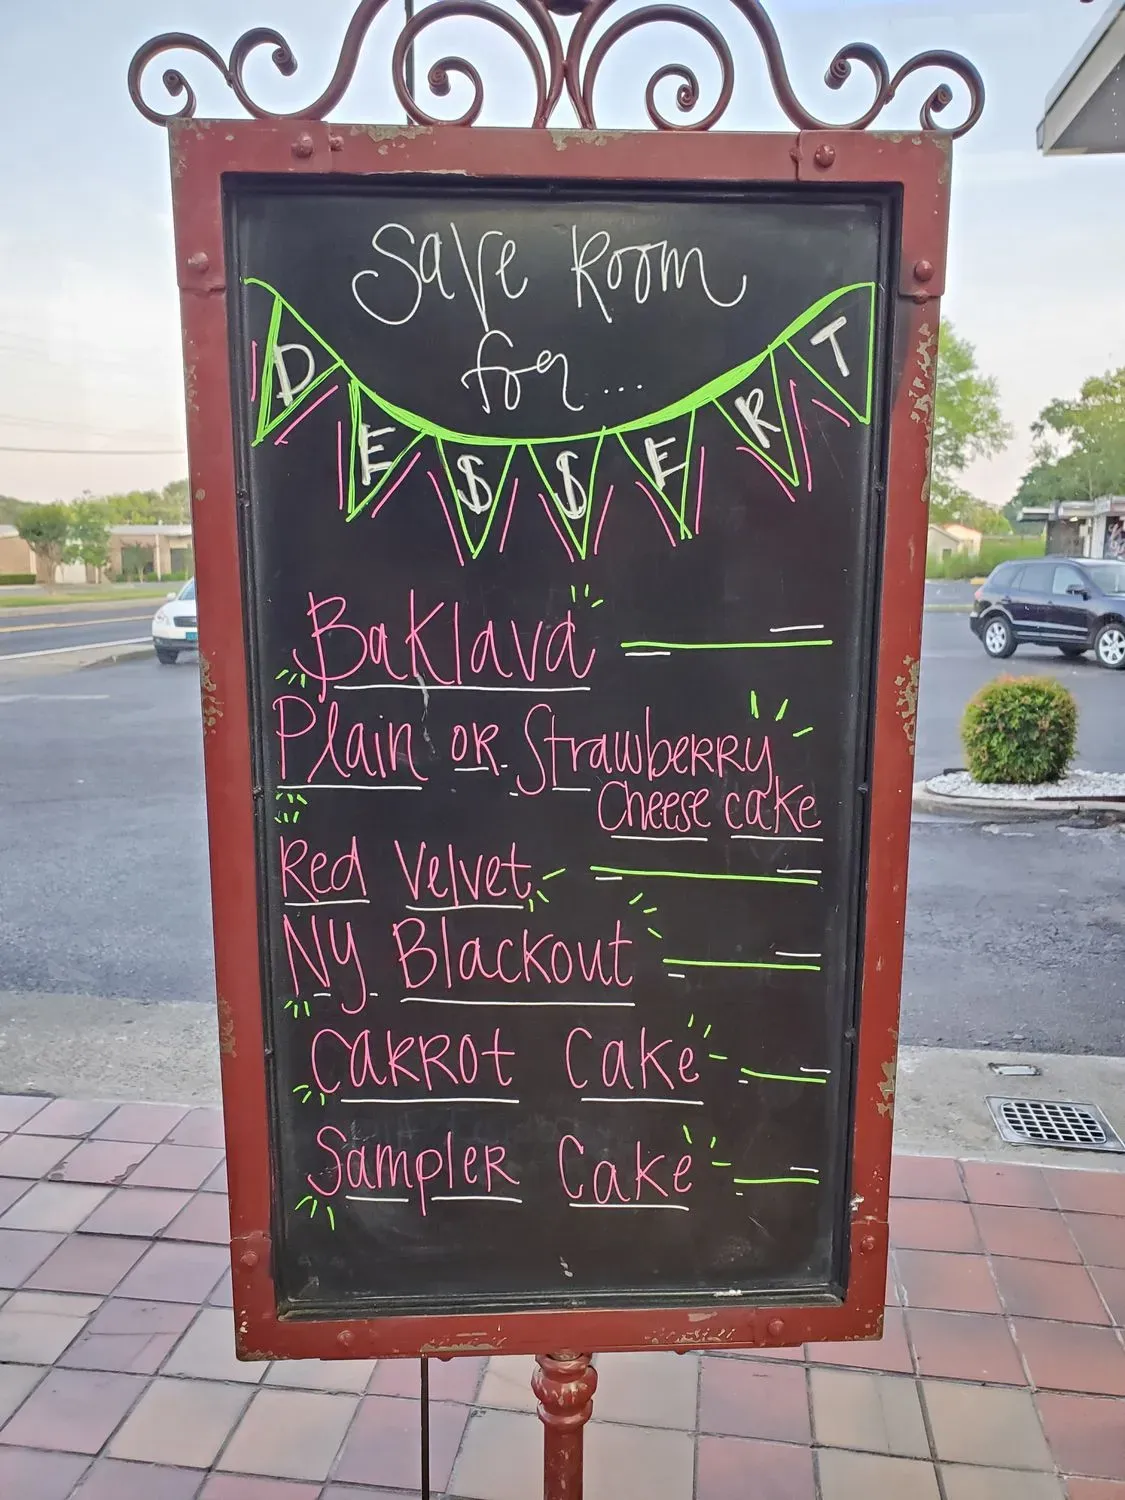 Save Room
for....
DESSERT
Baklava
Plain or Strawberry
Cheese cake
Red Velvet
NY Blackout
Carrot Cake
Sampler Cake